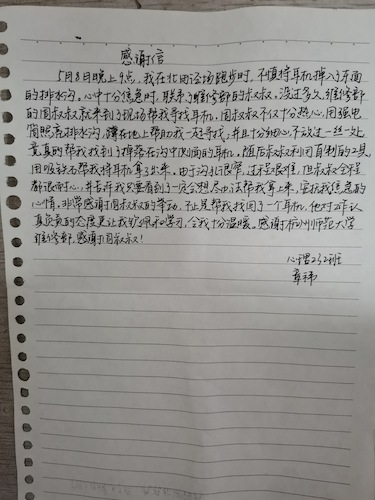 感谢信
5月8日晚上9点，我在北田径场跑步时，不慎将耳机掉入了东面
的排水沟。心中十分焦急时，联系了维修部的叔叔，没过多久，维修部
的周叔叔就来到了现场帮我寻找耳机，周叔叔不仅十分热心，用强电
筒照亮排水沟，蹲在地上帮助我一起寻找，并且十分细心，不放过一丝一处
竟真的帮我找到了掉落在沟中侧面的耳机，随后叔叔利用自制的工具，
用吸铁石帮我将耳机拿了出来，由于沟孔很窄，过程很难，但叔叔全程
都很耐心，并安抚我只要看到了一定会想尽办法帮我拿上来，安抚我焦急的
心情，非常感谢周叔叔的举动，不止是帮我找回了一个耳机，他对工作认
真负责的态度更让我钦佩和学习，令我十分温暖。感谢杭州师范大学
维修部，感谢周叔叔！
心理232班
章祎